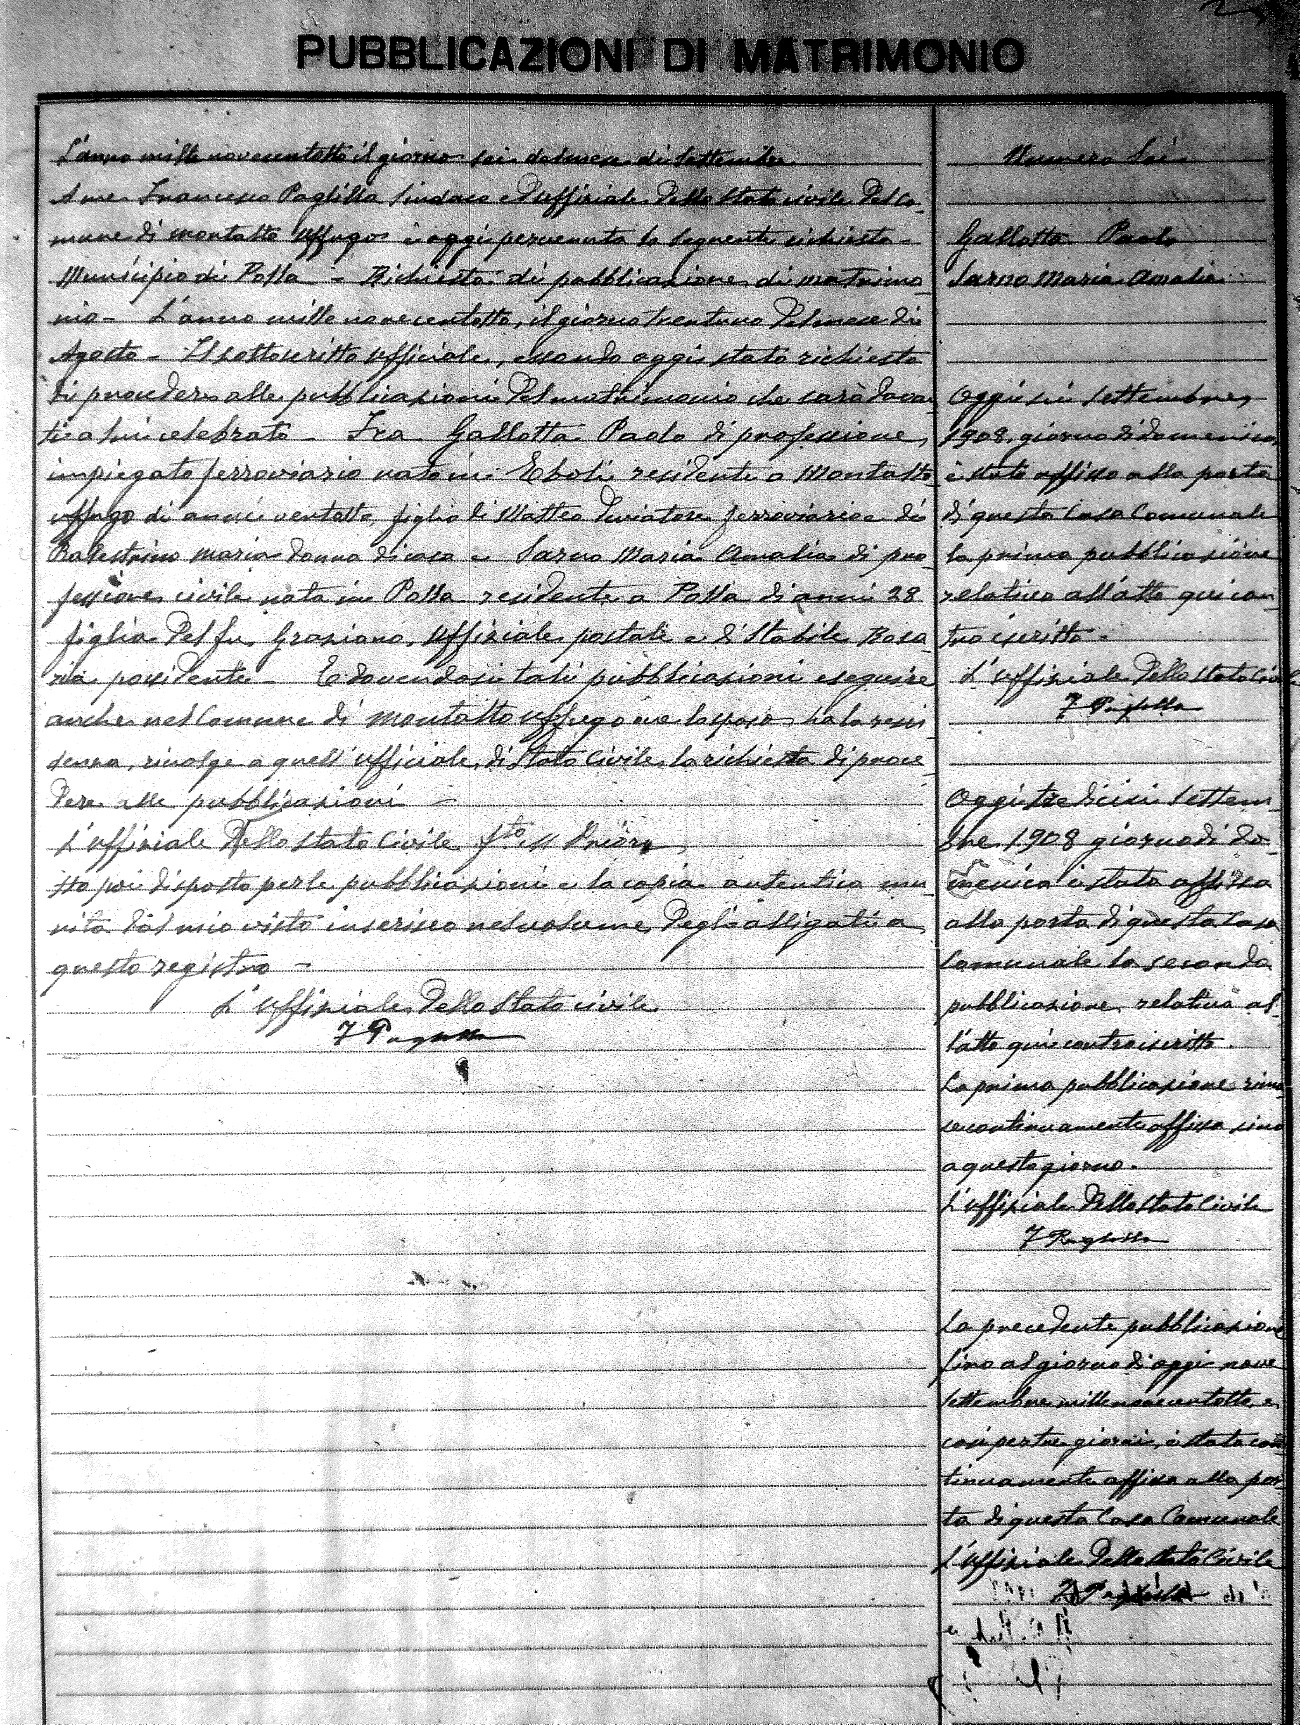 PUBBLICAZIONI DI MATRIMONIO
L'anno mille novecentotto il giorno sei del mese di Settembre
A me Francesco Paglilla Sindaco ed Uffiziale dello Stato civile del Co-
mune di Montalto Uffugo è oggi pervenuta la seguente richiesta -
Municipio di Polla - Richiesta di pubblicazione di matrimo-
nio - L'anno mille novecentotto, il giorno trentuno del mese di
Agosto - Il sottoscritto Ufficiale, essendo oggi stato richiesto
di procedere alle pubblicazioni del matrimonio che sarà davan-
ti a lui celebrato - Fra Gallotta Paolo di professione
impiegato ferroviario nato in Eboli residente a Montalto
Uffugo di anni ventotto, figlio di Matteo ferroviario e di
Balestrino Maria donna di casa e Sarno Maria Amalia di pro-
fessione civile nata in Polla residente a Polla di anni 28
figlia del fu Graziano, Uffiziale postale e di Stabile Rosa-
ria possidente - E dovendosi tali pubblicazioni eseguire
anche nel Comune di Montalto Uffugo ove lo sposo ha la resi-
denza, rivolge a quell'Ufficiale di Stato Civile la richiesta di proce-
dere alle pubblicazioni -
L'Uffiziale dello Stato Civile f.to
Ho poi disposto per le pubblicazioni e la copia autentica mu-
nita dal mio visto inserisco nel volume degli alligati a
questo registro -
L'Uffiziale dello Stato civile
F Paglilla
Numero Sei
Gallotta Paolo
Sarno Maria Amalia
Oggi sei Settembre
1908, giorno di domenica
è stato affisso alla porta
di questa Casa Comunale
la prima pubblicazione
relativa all'atto qui con-
tro iscritto -
L'Uffiziale dello Stato Civile
F Paglilla
Oggi tredici Settem-
bre 1908 giorno di Do-
menica è stata affissa
alla porta di questa Casa
Comunale la seconda
pubblicazione relativa al-
l'atto qui controiscritto.
La prima pubblicazione rima-
se continuamente affissa sino
a questo giorno.
L'Uffiziale dello Stato Civile
F Paglilla
La precedente pubblicazione
sino al giorno di oggi nove
Settembre mille novecentotto, e
così per tre giorni, è stata con-
tinuamente affissa alla por-
ta di questa Casa Comunale
L'Uffiziale dello Stato Civile
F Paglilla